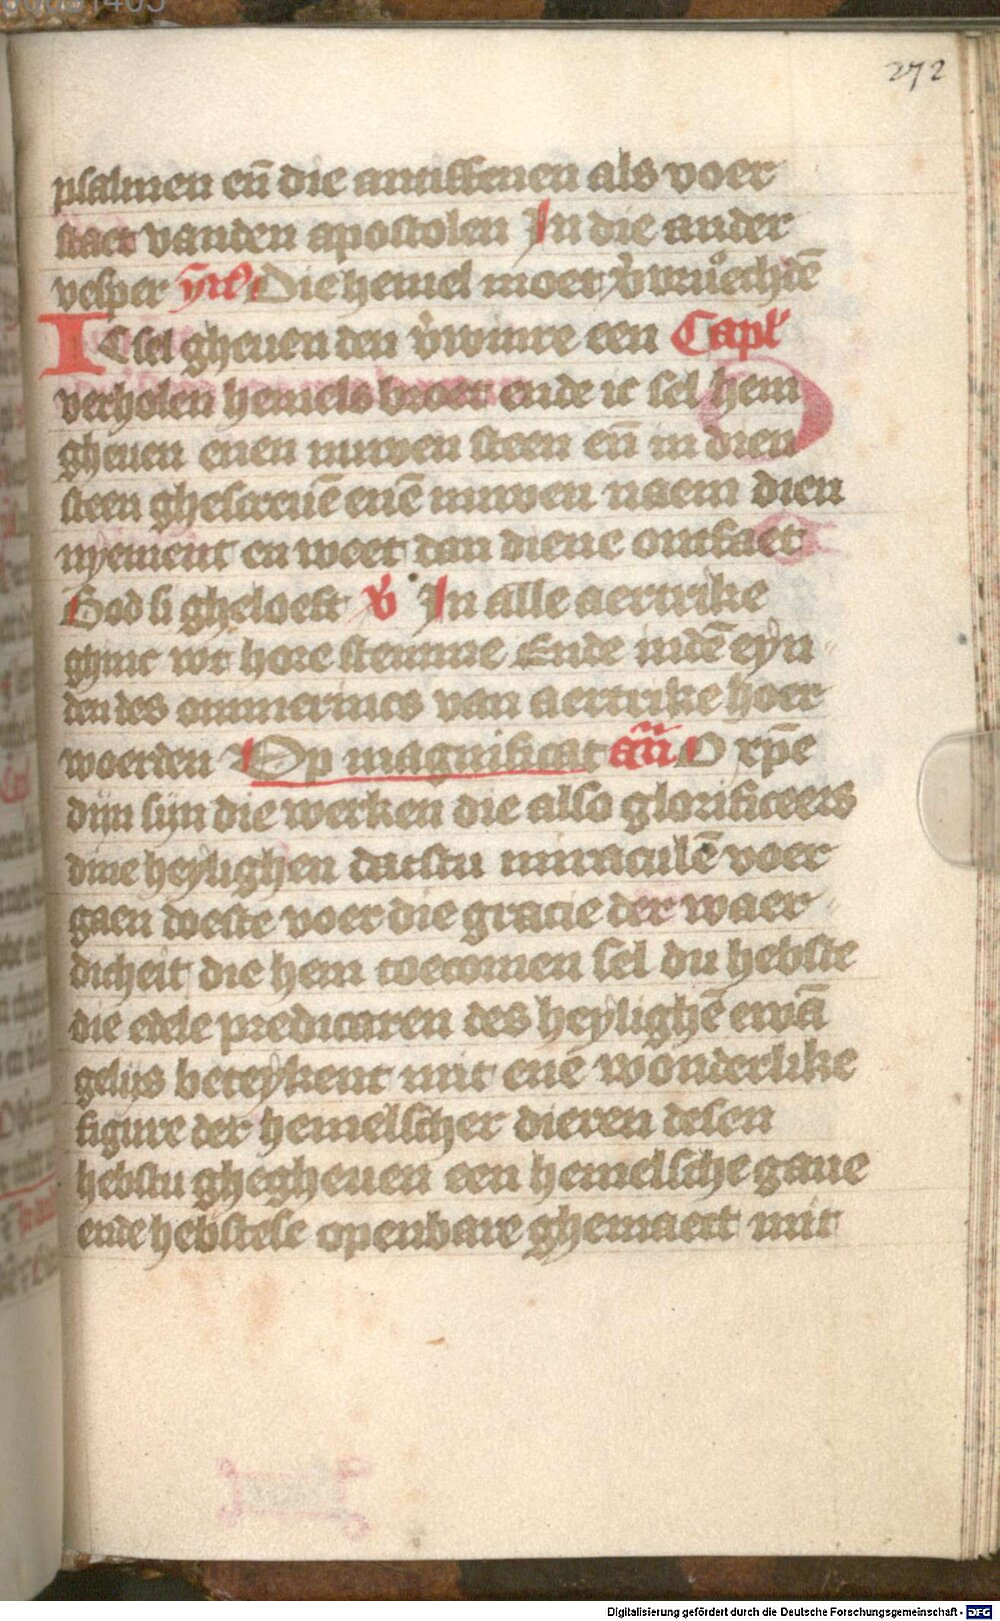 272
psalmen en̄ die antiffenen als voer
staet vanden apostolen In die ander
vesper ym̄ Die hemel moet v̓vruechdē
IC sel gheuen den v̓winre een Capl̓
verholen hemels broet ende ic sel hem
gheuen enen nuwen steen en̄ in dien
steen ghescreuē enē nuwen naem dien
nyement en weet dan diene ontfaet
God si gheloeft v̓ In alle aertrike
ghinc wt hore stemme Ende indē eyn
den des ommerincs van aertrike hoer
woerden Op magnificat an̄ O xp̄e
dijn sijn die werken die also glorificeers
dine heylighen datstu miraculē voer
gaen doeste voer die gracie der waer
dicheit die hem toecomen sel du hebste
die edele predicaren des heylighē ewā
gelijs beteykent mit enē wonderlike
figure der hemelscher dieren desen
hebstu ghegheuen een hemelsche gaue
ende hebstese openbare ghemaect mit
Digitalisierung gefördert durch die Deutsche Forschungsgemeinschaft - DFG